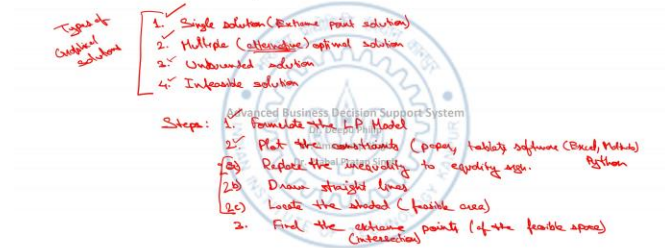 Types of
Graphical
solutions
1. Single solution (Extreme point solution)
2. Multiple (alternative) optimal solution
3. Unbounded solution
4. Infeasible solution
Advanced Business Decision Support System
Steps: 1. Formulate the LP Model
Dr. Deepu Philip
2. Plot the constraints (paper, tablets software (Excel, Matlab)
Python
2a) Replace the inequality to equality sign.
Dr. Prabal Pratap Singh
2b) Draw straight lines
2c) Locate the shaded (feasible area)
3. Find the extreme points (of the feasible space)
(intersection)